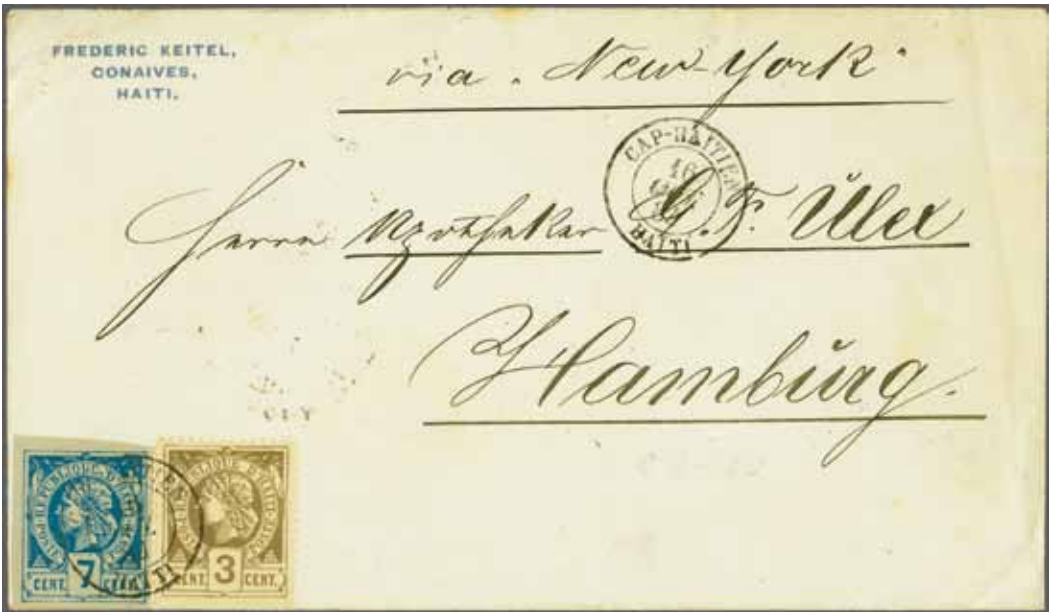 FREDERIC KEITEL,
GONAIVES,
HAITI.
via New-York
CAP-HAITIEN
16
HAITI
Herrn Apotheker G. F. Ülex
Hamburg.
REPUBLIQUE D'HAITI
CENT. 7 CENT.
HAITI
REPUBLIQUE D'HAITI
CENT. 3 CENT.